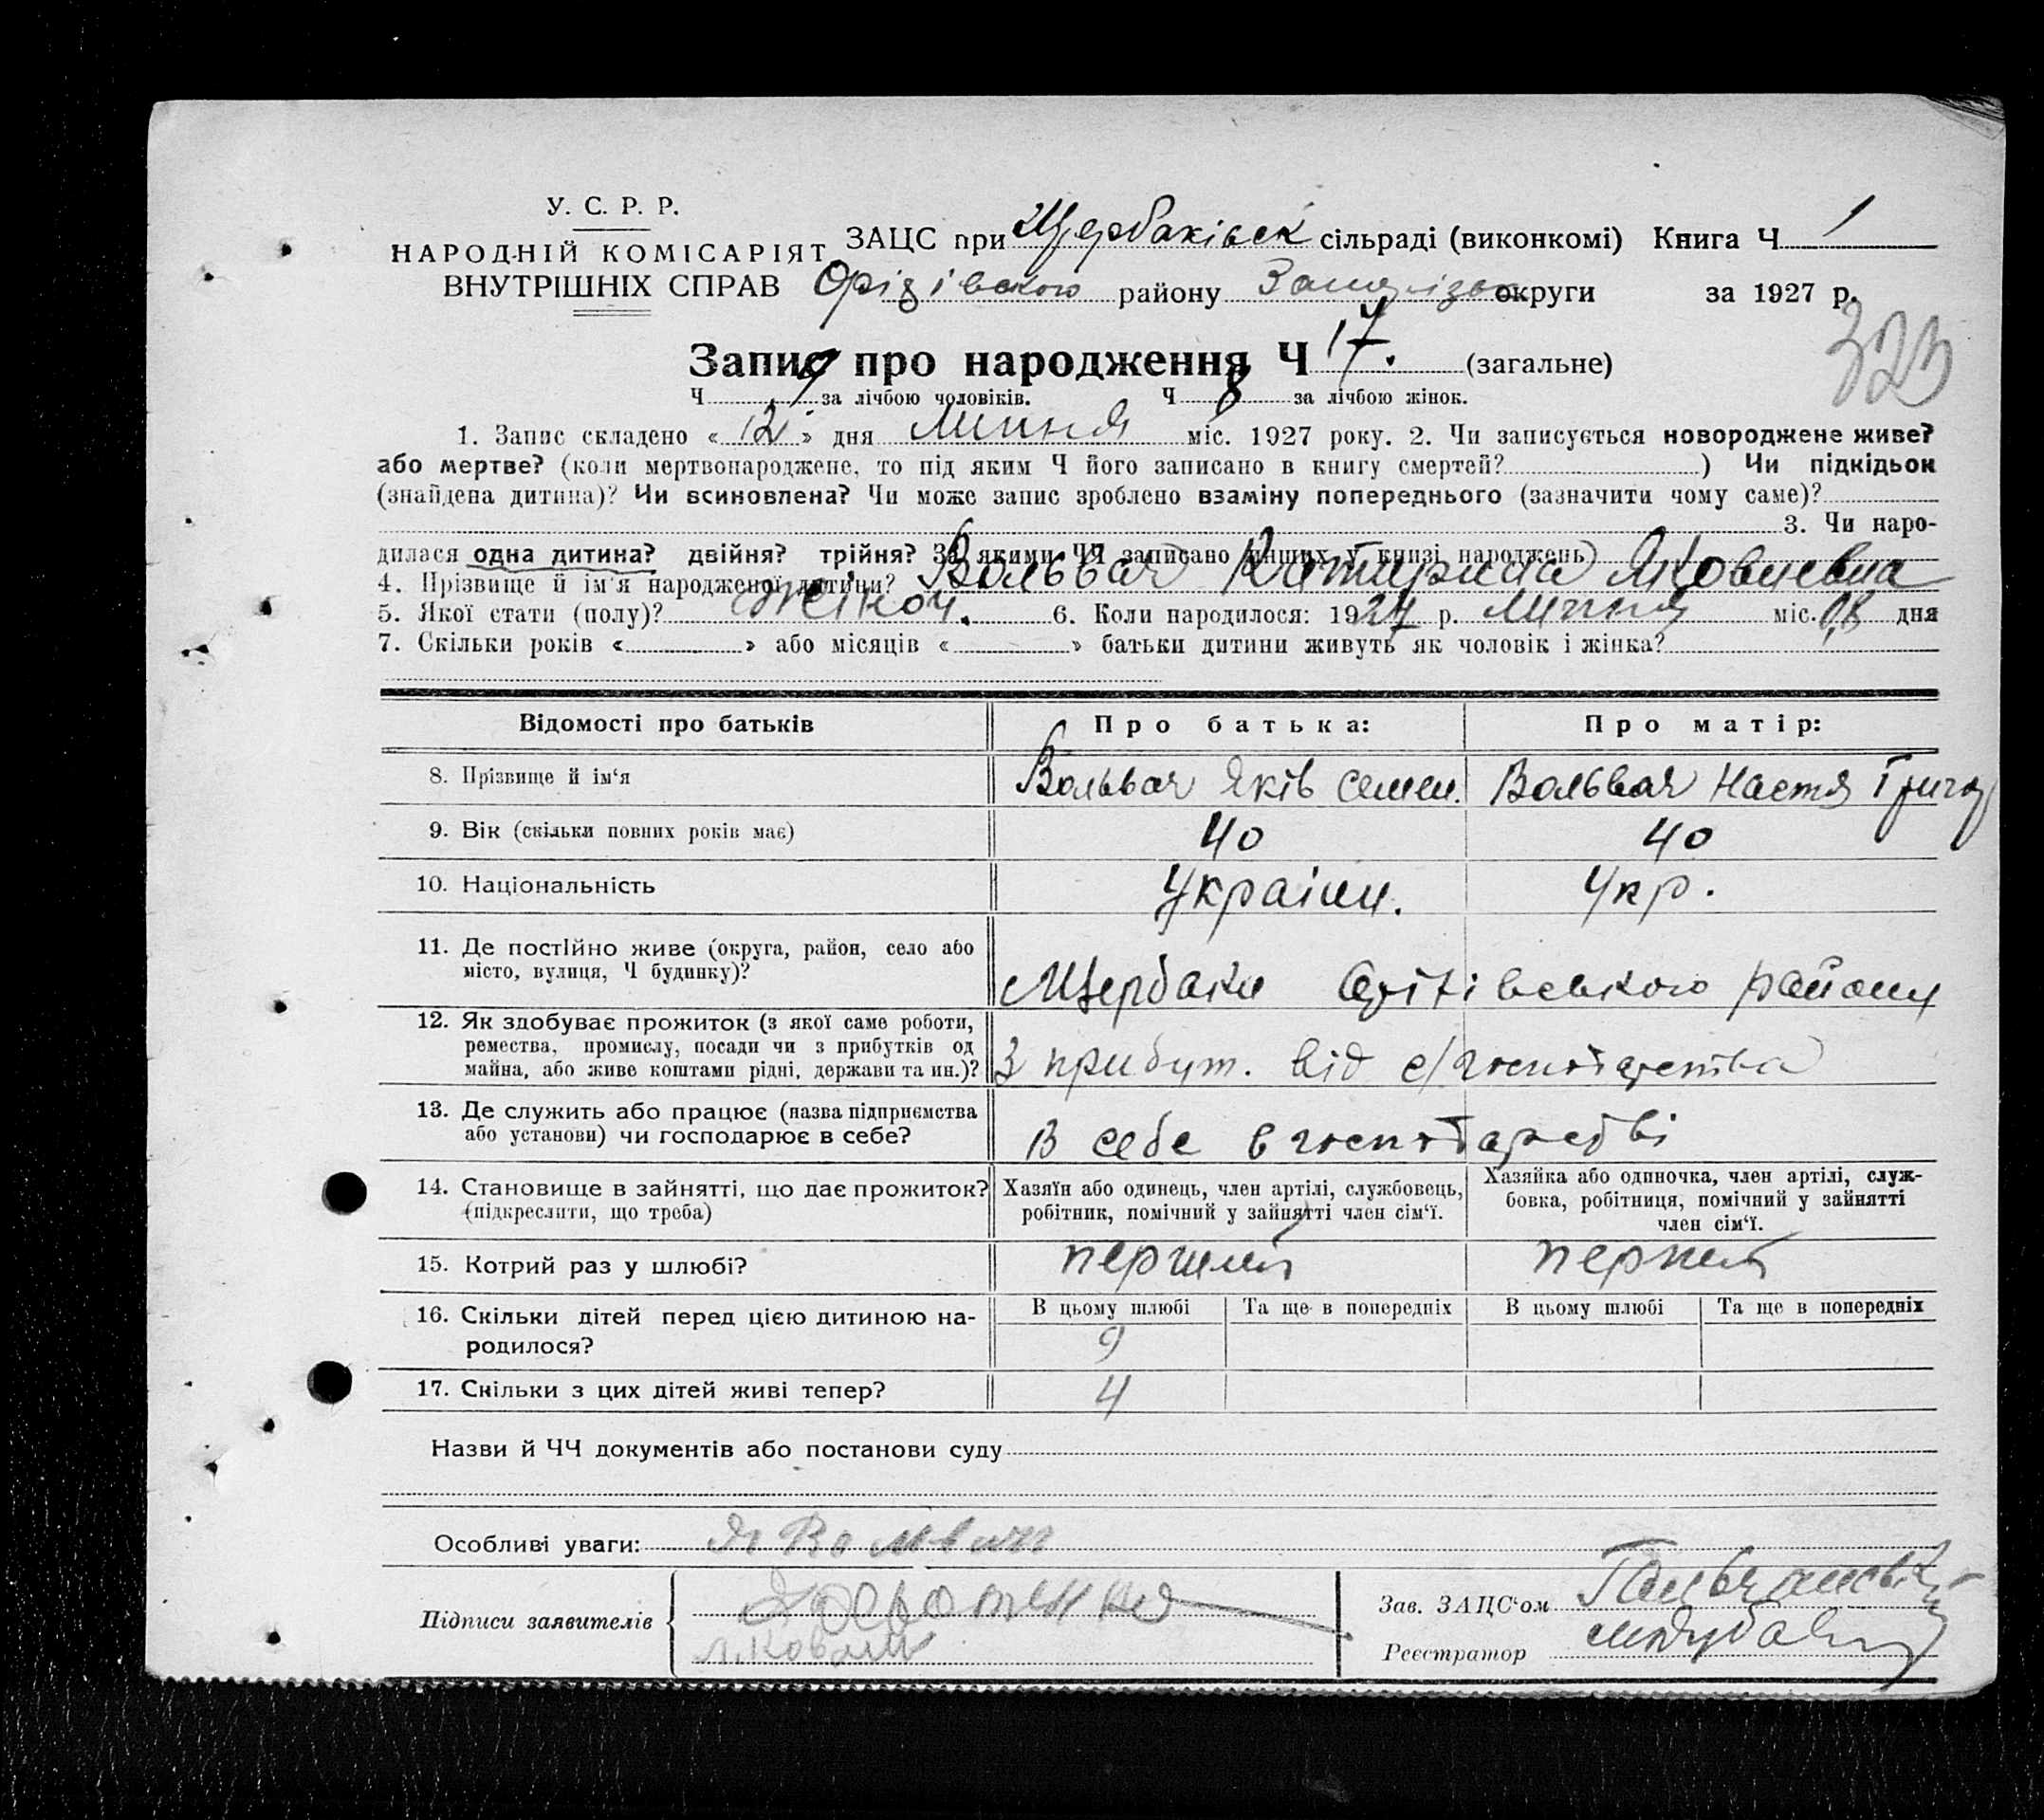 У. С. Р. Р.
НАРОДНІЙ КОМІСАРІЯТ
ВНУТРІШНІХ СПРАВ
ЗАЦС при Щербаківск сільраді (виконкомі) Книга Ч 1
Оріхівського району Запоріз округи за 1927 р.
323
Запис про народження Ч 17. (загальне)
Ч 9 за лічбою чоловіків. Ч 8 за лічбою жінок.
1. Запис складено « 12 » дня Липня міс. 1927 року. 2. Чи записується новороджене живе?
або мертве? (коли мертвонароджене, то під яким Ч його записано в книгу смертей? ) Чи підкідьок
(знайдена дитина)? Чи всиновлена? Чи може запис зроблено взаміну попереднього (зазначити чому саме)?
3. Чи наро-
дилася одна дитина? двійня? трійня? За якими ЧЧ записано инших у книзі народжень
4. Прізвище й ім'я народженої дитини? Вольвач Катирина Яковлевна
5. Якої стати (полу)? жіноч. 6. Коли народилося: 1927 р. Липня міс. 08 дня
7. Скільки років « » або місяців « » батьки дитини живуть як чоловік і жінка?
Відомості про батьків Про батька: Про матір:
8. Прізвище й ім'я Вольвач Яків Семен. Вольвач Настя Григор
9. Вік (скільки повних років має) 40 40
10. Національність Україн. Укр.
11. Де постійно живе (округа, район, село або
місто, вулиця, Ч будинку)?
Щербаки Оріхівського району
12. Як здобуває прожиток (з якої саме роботи,
ремества, промислу, посади чи з прибутків од
майна, або живе коштами рідні, держави та ин.)?
З прибут. від с/господарства
13. Де служить або працює (назва підприємства
або установи) чи господарює в себе?
В себе в господарстві
14. Становище в зайнятті, що дає прожиток?
(підкреслити, що треба)
Хазяїн або одинець, член артілі, службовець,
робітник, помічний у зайнятті член сім'ї.
Хазяйка або одиночка, член артілі, служ-
бовка, робітниця, помічний у зайнятті
член сім'ї.
15. Котрий раз у шлюбі? перший перший
16. Скільки дітей перед цією дитиною на-
родилося?
В цьому шлюбі Та ще в попередніх В цьому шлюбі Та ще в попередніх
9
17. Скільки з цих дітей живі тепер? 4
Назви й ЧЧ документів або постанови суду
Особливі уваги: Я Вольвач
Підписи заявителів
Л. Коваль
Зав. ЗАЦС'ом
Реєстратор